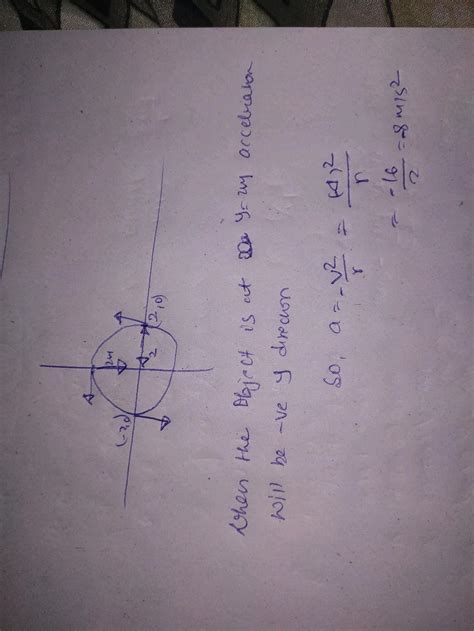 (-2,0)
2m
2
(2,0)
When the Object is at y=2m accelration
will be -ve y direction
So, a = -v²/r = (4)²/r
= -16/2 = -8 m/s²